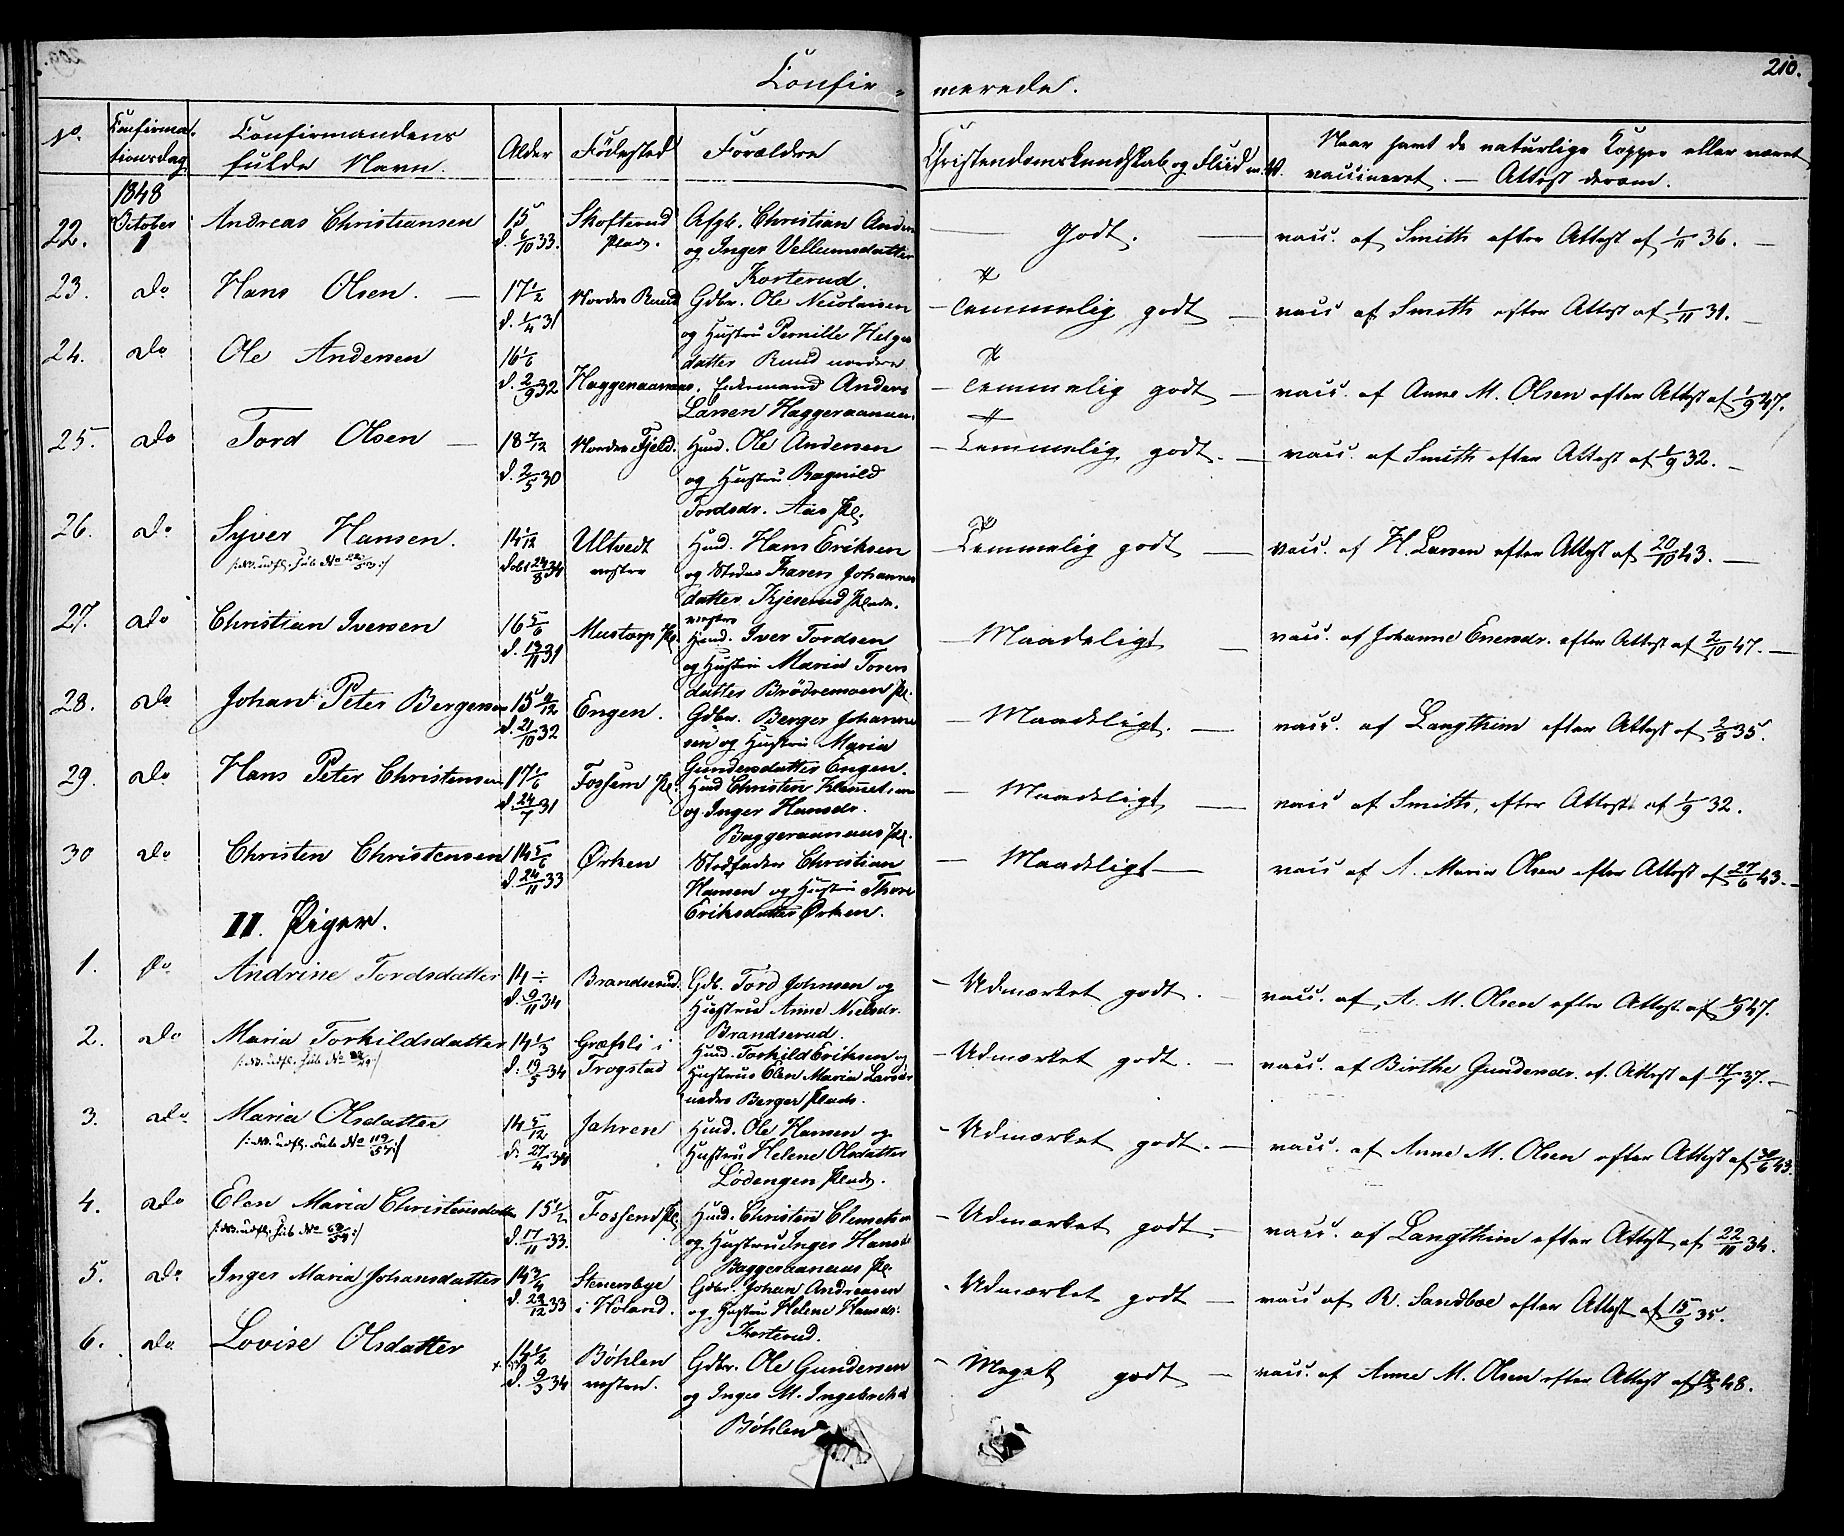 210.
Confir- merede.
No. Confirmationsdag Confirmandens fulde Navn. Alder Födested Forældre Christendomskundskab og Fliid m.V. Naar havt de naturlige Kopper eller været vaccineret. — Attest derom.
1848
22. October 1 Andreas Christiansen 15 d. 6/10 33. Skofterud Plads. Afgb. Christian Anders og Inger Vellumsdatter Korterud. Godt. vacc. af Smith efter Attest af 1/11 36.
23. do Hans Olsen. 17 1/2 d. 1/4 31 Nordre Ruud Gdbr. Ole Nicolaisen og Hustru Pernille Helges datter Ruud nordre Temmelig godt vacc af Smith efter Attest af 1/11 31.
24. do Ole Andersen 16 1/6 d. 2/9 32 Haggenaarnaas. Enkemand Anders Larsen Haggeraanaas. Temmelig godt vacc. af Anne M. Olsen efter Attest af 1/9 47.
25. do Tord Olsen 18 5/12 d. 2/5 30 Nordre Fjeld. Huusd. Ole Andersen og Hustru Ragnild Tordsdr. Aas Pl. Temmelig godt. vacc. af Smith efter Attest af 1/9 32.
26. do Syver Hansen. 14 1/12 døbt 24/8 34 Ultvedt vestre Huusd. Hans Eriksen og Karen Johannes datter Kjeserud Plads. Temmelig godt vacc. af H. Larsen efter Attest af 20/10 43.
27. do Christian Iversen 16 5/6 d. 13/11 31 Mustorp Pl. vestre Huusd. Iver Tordsen og Hustru Maria Tores datter Brödremoen Pl. Maadeligt vacc. af Johanne Enersdr. efter Attest af 2/10 47.
28. do Johan Peter Bergersen 15 11/12 d. 21/10 32 Engen. Gdbr. Berger Johannesen og Hustru Maria Gundersdatter Engen. Maadeligt. vacc. af Langthim efter Attest af 2/8 35.
29. do Hans Peter Christensen 17 1/6 d. 24/7 31 Fossum Pl. Huusd Christen Klemetsen og Inger Hansdr. Baggeraanaas Pl. Maadeligt vacc af Smith, efter Attest af 1/9 32.
30 do Christen Christensen 14 5/6 d. 24/11 33 Örken Stedfader Christian Hansen og Hustru Thore Eriksdatter Örken. Maadeligt vacc af A. Maria Olsen efter Attest af 27/6 43.
II. Piger.
1. do Andrine Tordsdatter 14 ÷ d. 9/11 34 Brandserud. Gdb. Tord Johnsen og Hustru Anne Nielsdr. Brandserud. Udmærket godt. vacc. af A. M. Olsen efter Attest af 1/9 47.
2. do Maria Torkildsdatter 14 1/3 d. 19/5 34 Græsli i Trogstad Huusd. Torkild Eriksen og Hustrue Elen Maria Larsdr nedre Berger Plads. Udmærket godt. vacc. af Birthe Gundersdr. ef. Attest af 17/7 37.
3. do Maria Olsdatter /:NB. udfl. sub No 119/54:/ 14 5/12 d. 27/4 34 Jahren Huusd. Ole Hansen og Hustru Helene Olsdatter Lødengen Plads. Udmærket godt. vacc. af Anne M. Olsen efter Attest af 30/6 43.
4. do Elen Maria Christensdatter 15 1/2 d. 17/11 33. Fossend Pl. Huusd. Christen Clemetsen og Hustru Inger Hansd. Baggeraanaas Pl. Udmærket godt vacc. af Langthim efter Attest af 22/11 34.
5. do Inger Maria Johansdatter 14 3/4 d. 29/12 33 Stenersbye i Höland. Gdbr. Johan Andreasen og Hustru Helene Hansd. Korterud. Udmærket godt vacc af R. Sandboe efter Attest af 15/9 35.
6. do Lovise Olsdatter 14 1/2 d. 9/3 34 Böhlen vestre. Gdbr. Ole Gundersen og Inger M. Ingebretsd Böhlen Meget godt vacc. af Anne M. Olsen efter Attest af 48.